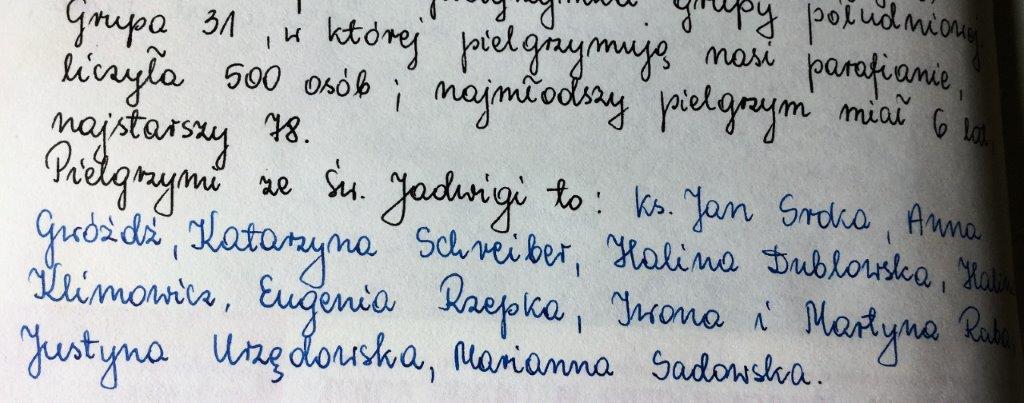 grupy południowej
Grupa 31, w której pielgrzymują nasi parafianie,
liczyła 500 osób; najmłodszy pielgrzym miał 6 lat
najstarszy 78.
Pielgrzymi ze św. Jadwigi to: ks. Jan Srdka, Anna
Gwóźdź, Katarzyna Schreiber, Halina Dublowska, Halina
Klimowicz, Eugenia Rzepka, Iwona i Martyna Raba
Justyna Urzędowska, Marianna Sadowska.